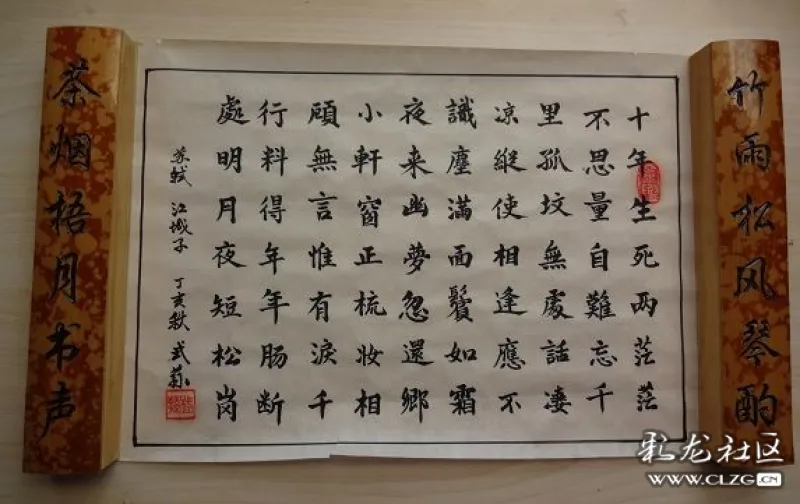 竹雨松风琴韵
十年生死两茫茫
不思量自難忘千
里孤坟無處話凄
凉縱使相逢應不
識塵滿面鬢如霜
夜来幽夢忽還鄉
小軒窗正梳妆相
顧無言惟有淚千
行料得年年肠断
處明月夜短松岗
苏轼 江城子 丁亥秋
茶烟梧月书声
彩龙社区
www.CLZG.CN